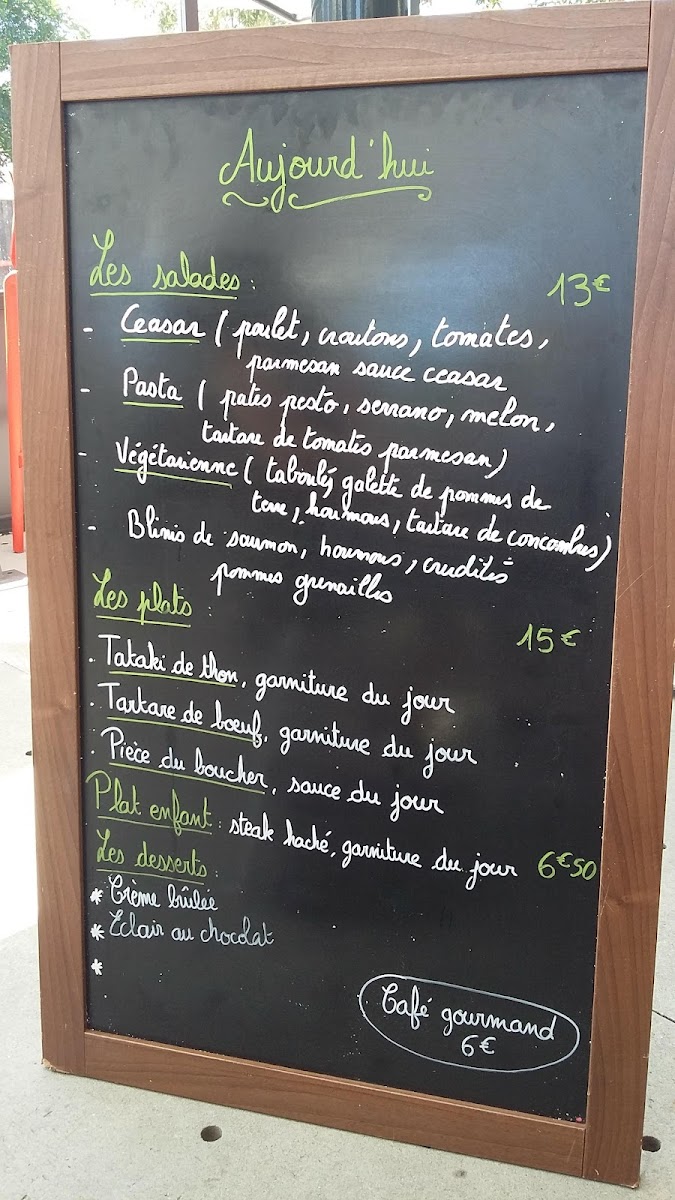 Aujourd'hui
Les salades : 13€
- Ceasar ( poulet, croutons, tomates,
parmesan sauce ceasar
- Pasta ( pates pesto, serrano, melon,
tartare de tomates parmesan)
- Végétarienne ( taboulés galette de pommes de
terre, houmous, tartare de concombres)
- Blinis de saumon, houmous, crudités
pommes grenailles
Les plats : 15€
. Tataki de thon, garniture du jour
. Tartare de bœuf, garniture du jour
. Pièce du boucher, sauce du jour
Plat enfant : steak haché, garniture du jour 6€50
Les desserts :
* Crème brûlée
* Eclair au chocolat
*
Café gourmand
6€